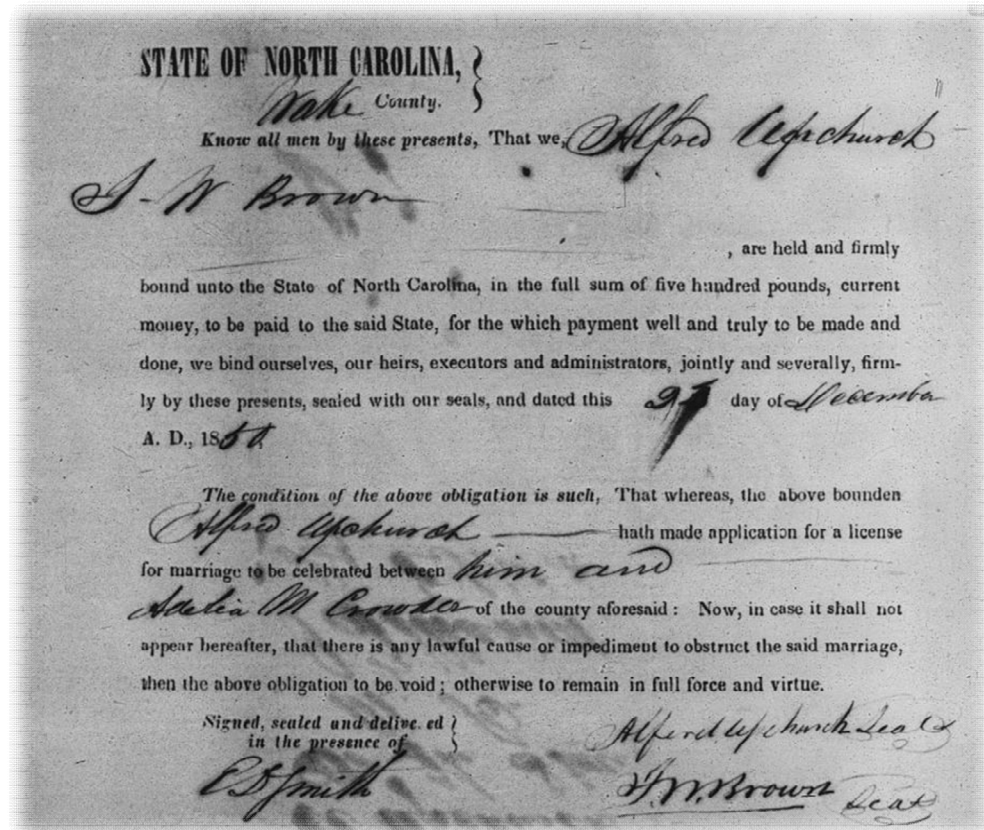 STATE OF NORTH CAROLINA,
Wake County.
Know all men by these presents, That we, Alfred Upchurch
W Brown
, are held and firmly
bound unto the State of North Carolina, in the full sum of five hundred pounds, current
money, to be paid to the said State, for the which payment well and truly to be made and
done, we bind ourselves, our heirs, executors and administrators, jointly and severally, firm-
ly by these presents, sealed with our seals, and dated this day of December
A. D., 18
The condition of the above obligation is such, That whereas, the above bounden
Alfred Upchurch hath made application for a license
for marriage to be celebrated between him and
Adelia M Crowder of the county aforesaid : Now, in case it shall not
appear hereafter, that there is any lawful cause or impediment to obstruct the said marriage,
then the above obligation to be void ; otherwise to remain in full force and virtue.
Signed, sealed and delive.ed
in the presence of
Alfred Upchurch Seal
E D Smith
W. Brown Seal